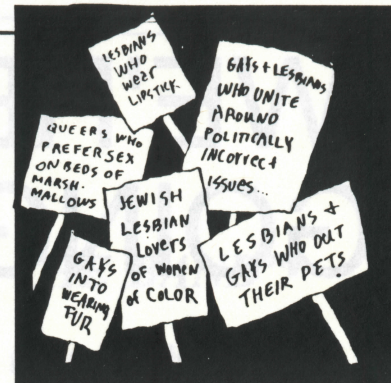 LESBIANS
WHO
WEAR
LIPSTICK.
GAYS + LESBIANS
WHO UNITE
AROUND
POLITICALLY
INCORRECT
ISSUES...
QUEERS WHO
PREFER SEX
ON BEDS OF
MARSH-
MALLOWS
JEWISH
LESBIAN
LOVERS
OF WOMEN
OF COLOR
LESBIANS +
GAYS WHO OUT
THEIR PETS!
GAYS
INTO
WEARING
FUR